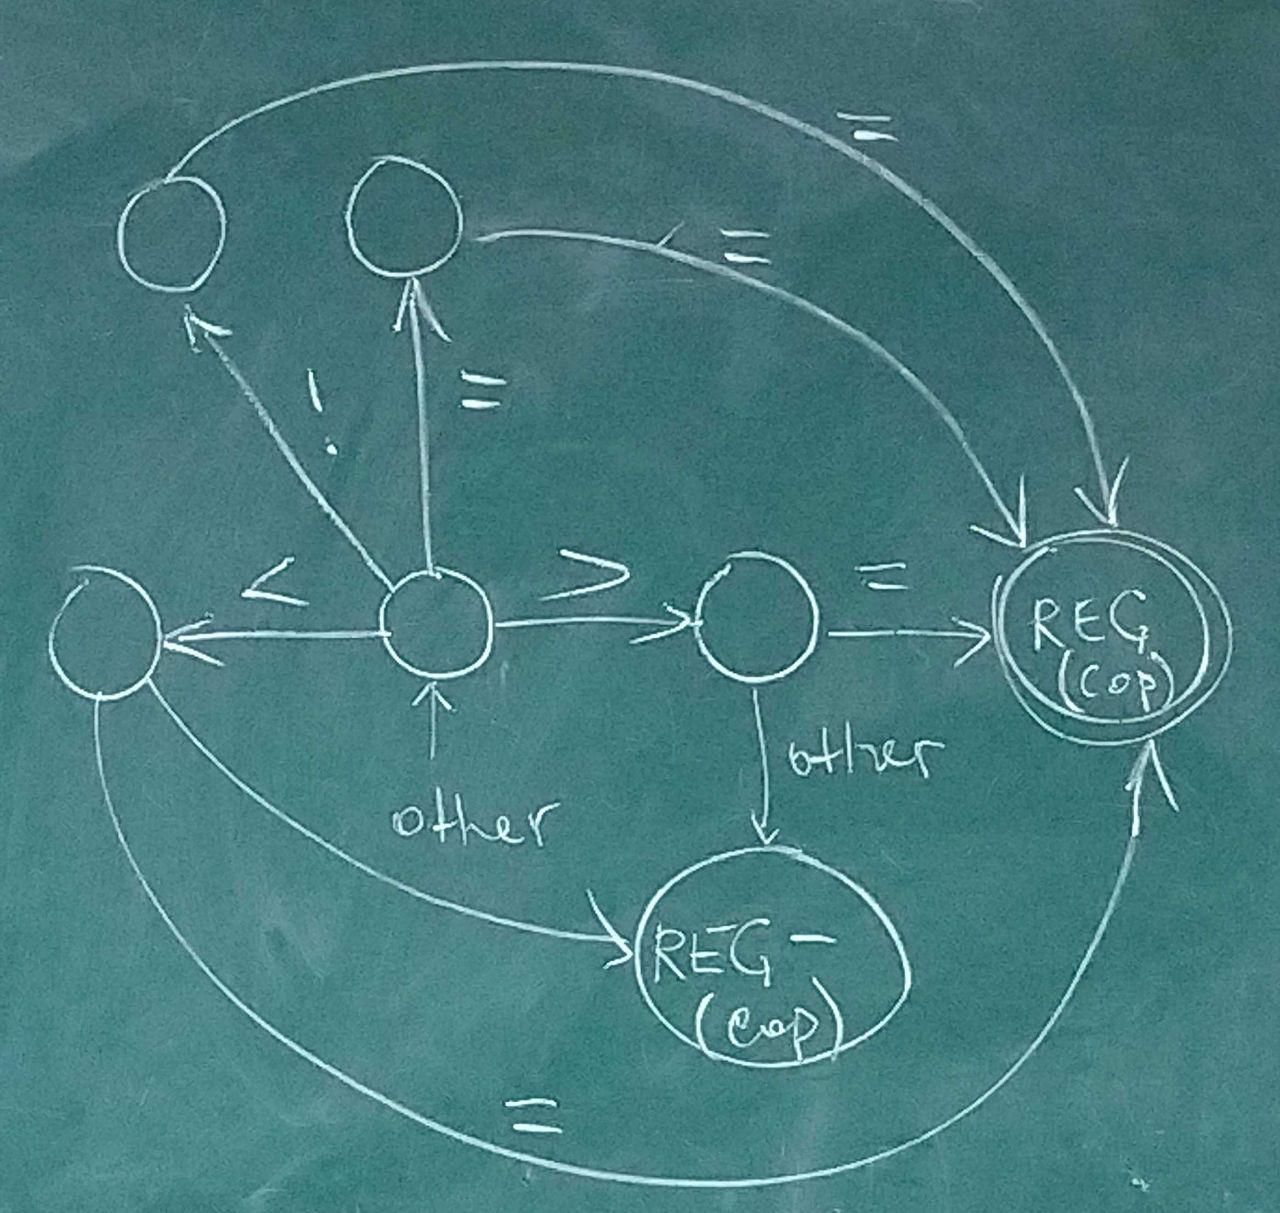 =
=
!
=
<
>
=
REG
(cop)
other
other
REG -
(cop)
=